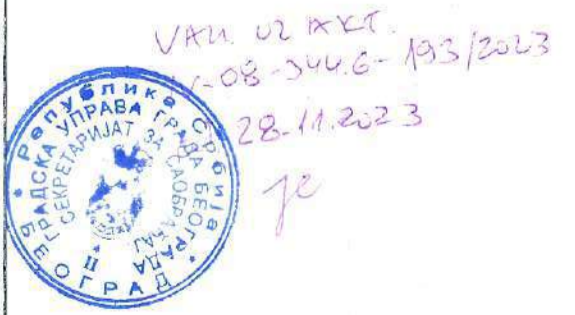 VAŽI UZ AKT.
V-08-344.6-193/2023
28.11.2023
Република Србија
ГРАДСКА УПРАВА ГРАДА БЕОГРАДА
СЕКРЕТАРИЈАТ ЗА САОБРАЋАЈ
II
БЕОГРАД